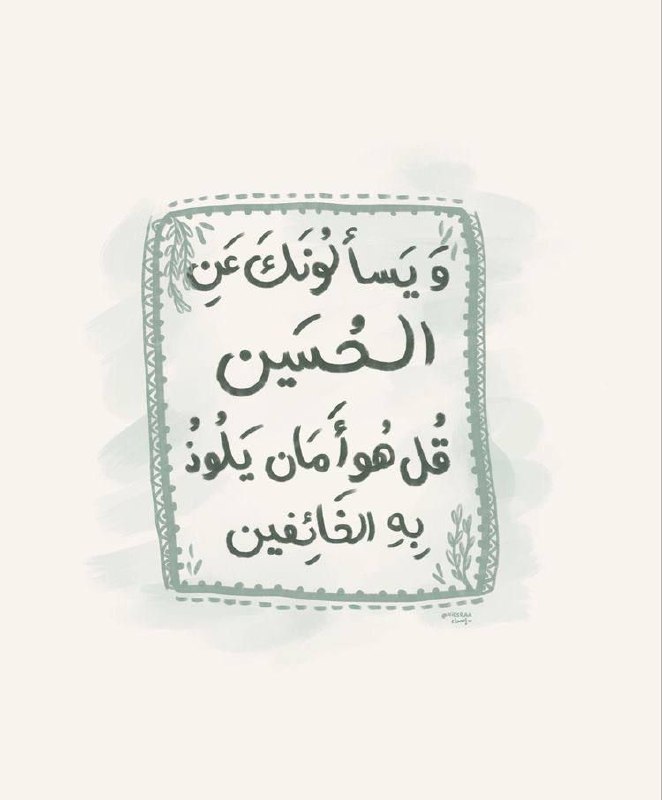 وَ يَسأَلُونَكَ عَنِ
الحُسَين
قُل هُو أَمَان يَلُوذُ
بِهِ الخَائِفين